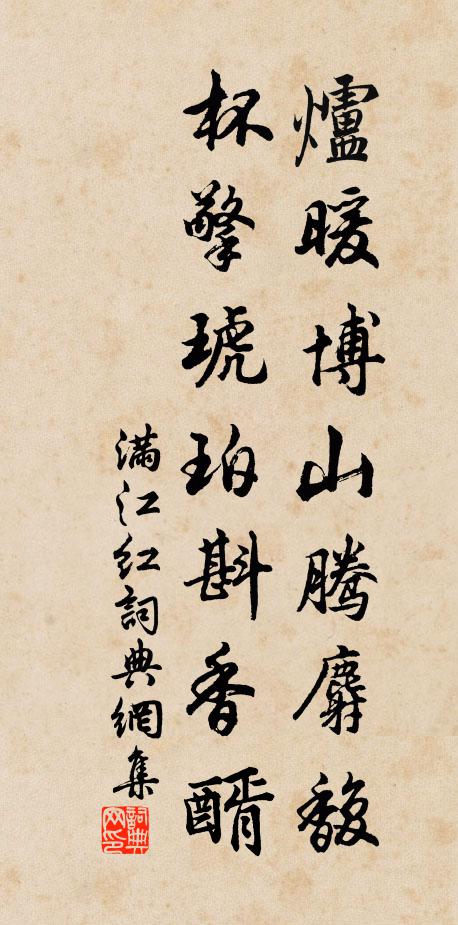 爐暖博山騰麝馥
杯擎琥珀斟香醑
滿江紅詞典網集
詞典网印